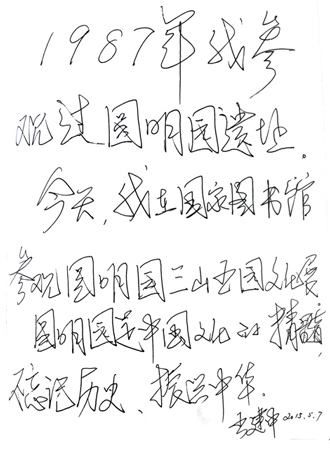 1987年我参
观过圆明园遗址.
今天,我在国家图书馆
参观圆明园三山五园文化展
圆明园是中国文化的精髓,
记历史、振兴中华.
2015.5.7